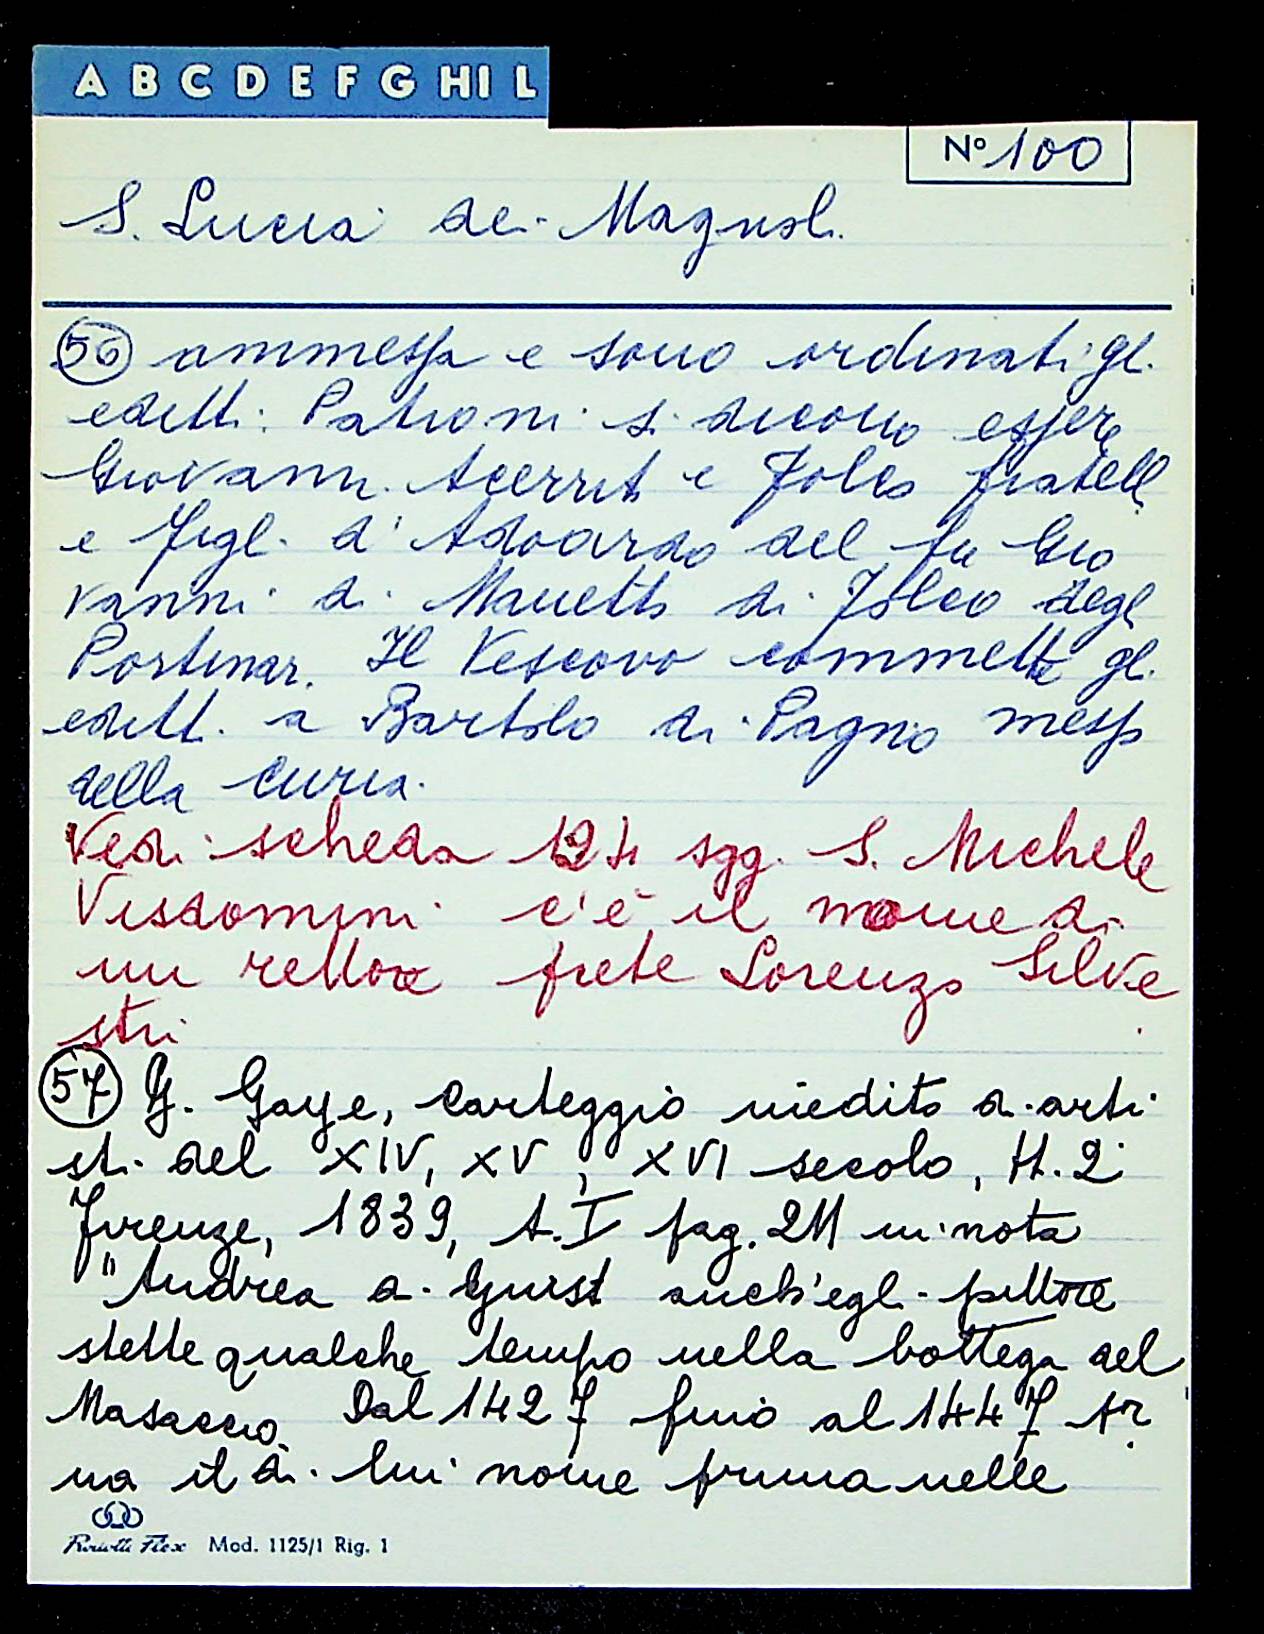 A B C D E F G HI L
N° 100
S. Lucia dei Magnoli
56 ammessa e sono ordinati gli
editti. Patroni si dicono essere
Giovanni Acerrito e Folco fratelli
e figli d'Adoardo del fu Gio
vanni di Manetto di Folco degli
Portinari. Il Vescovo commette gli
editti a Bartolo di Pagno messo
della Curia.
Vedi scheda 124 sgg. S. Michele
Visdomini c'è il nome di
un rettore prete Lorenzo Silve
stri
57 G. Gaye, Carteggio inedito di arti
sti del XIV, XV, XVI secolo, tt. 2
Firenze, 1839, t. I pag. 211 in nota
"Andrea di Giusto anch'egli pittore
stette qualche tempo nella bottega del
Masaccio. Dal 1427 fino al 1447 tor
na il di lui nome prima nelle
Mod. 1125/1 Rig. 1